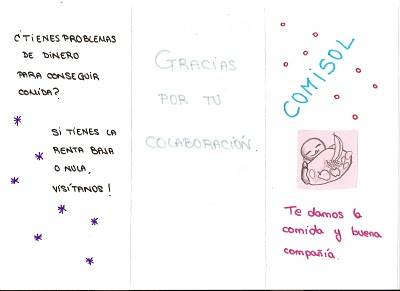 ¿TIENES PROBLEMAS
DE DINERO
PARA CONSEGUIR
COMIDA?
SI TIENES LA
RENTA BAJA
O NULA,
VISÍTANOS!
GRACIAS
POR TU
COLABORACIÓN
COMISOL
Te damos la
comida y buena
compañía.